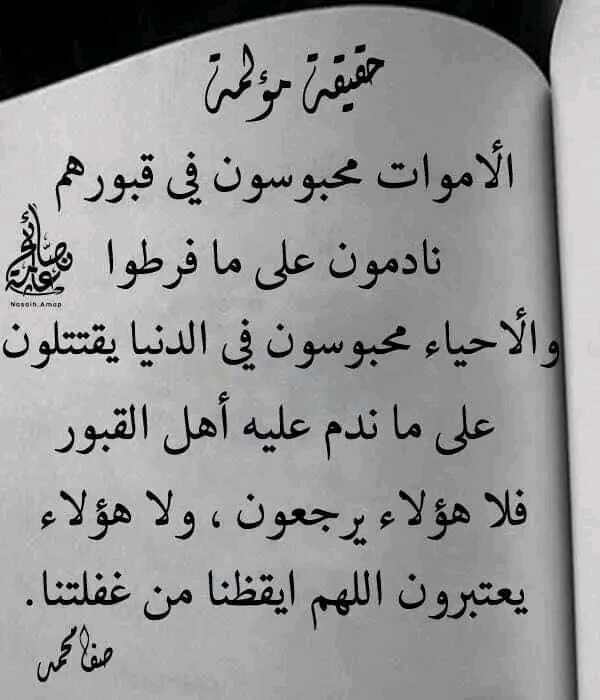 حقيقة مؤلمة
الأموات محبوسون في قبورهم
نادمون على ما فرطوا
نصائح عامة
Nasaih.Amap
والأحياء محبوسون في الدنيا يقتتلون
على ما ندم عليه أهل القبور
فلا هؤلاء يرجعون ، ولا هؤلاء
يعتبرون اللهم ايقظنا من غفلتنا.
صفا محمد